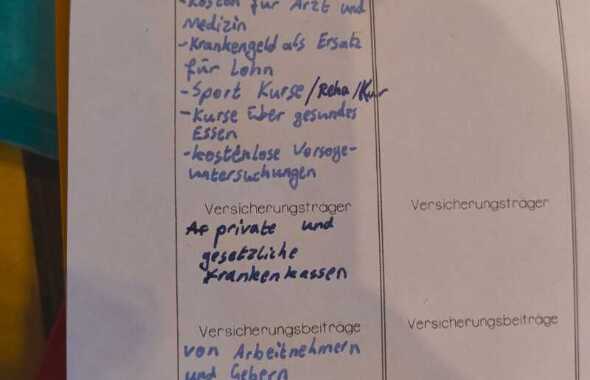 -Kosten für Arzt und
Medizin
-Krankengeld als Ersatz
für Lohn
-Sport Kurse/Reha/Kur
-Kurse über gesundes
Essen
-kostenlose Vorsoge-
untersuchungen
Versicherungsträger
Versicherungsträger
private und
gesetzliche
Krankenkassen
Versicherungsbeiträge
Versicherungsbeiträge
von Arbeitnehmern
und Gebern